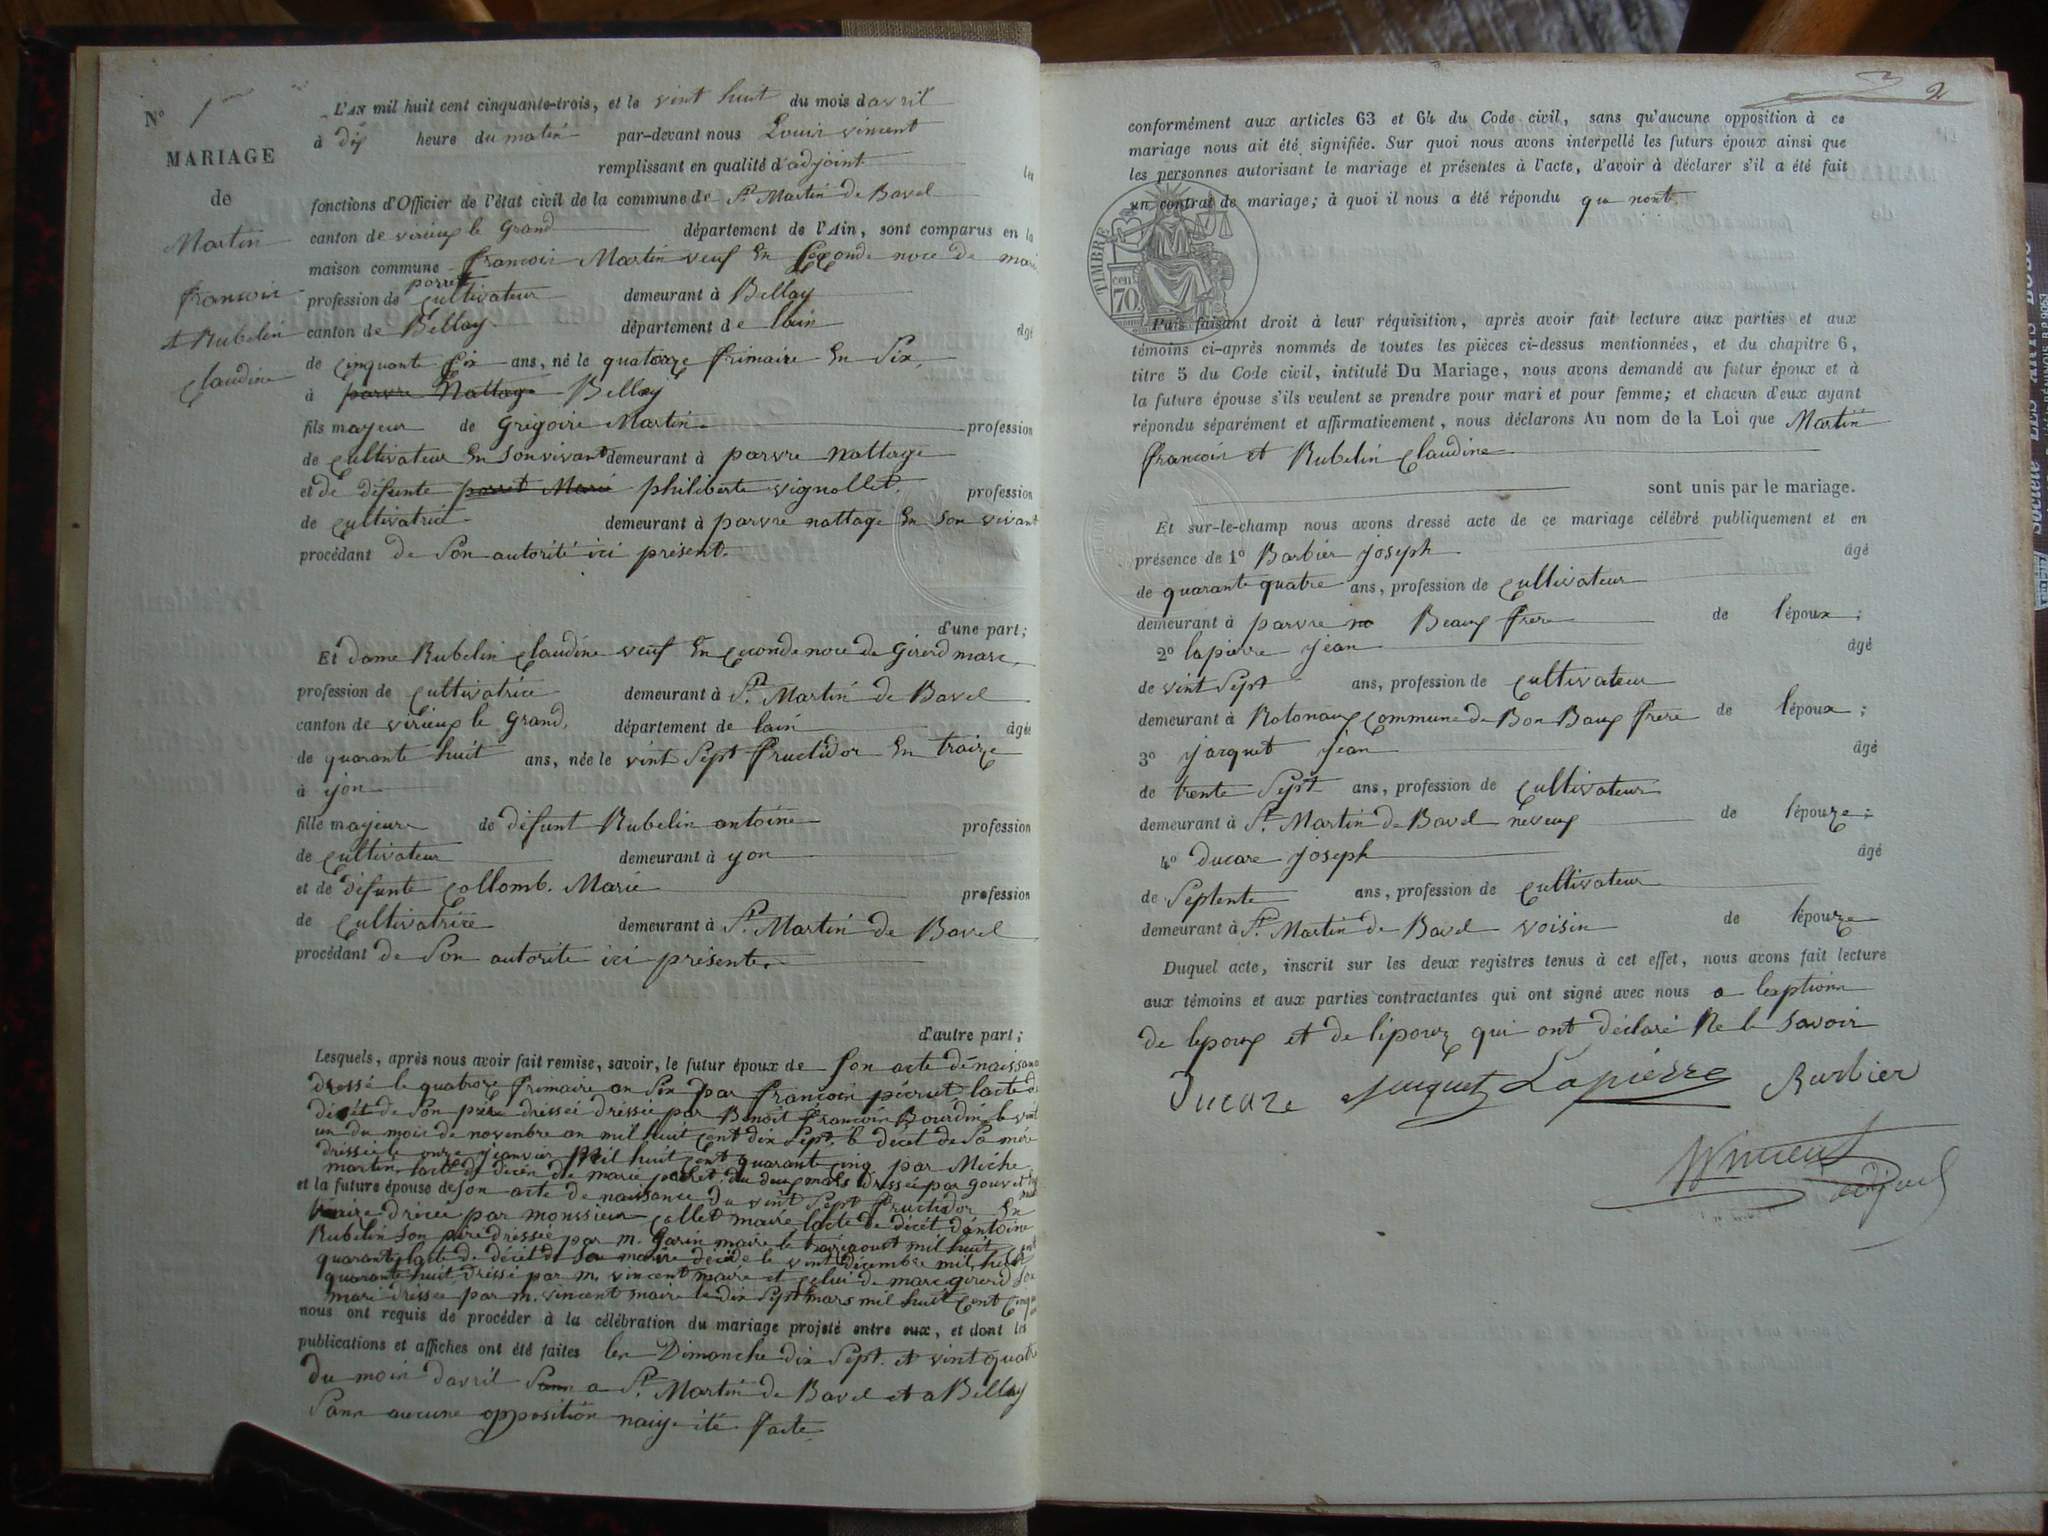 N° 1
MARIAGE
de
Martin
francoir
et Rubelin
Claudine
L'AN mil huit cent cinquante-trois, et le vint huit du mois davril
à dix heure du matin par-devant nous Louis vincent
remplissant en qualité d'adjoint les
fonctions d'Officier de l'état civil de la commune de St. Martin de Bavel
canton de virieux le Grand département de l'Ain, sont comparus en la
maison commune francoir Martin veuf En seconde noce de marie
porret
profession de cultivateur demeurant à Belley
canton de Belley département de lain âgé
de cinquante six ans, né le quatorze frimaire En Six,
à parvre Nattage Belley
fils majeur de Grégoire Martin profession
de cultivateur En son vivant demeurant à parvre nattage
et de défunte porret Marie philiberte vignollet. profession
de cultivatrice demeurant à parvre nattage En son vivant
procédant de Son autorité ici présent.
d'une part;
Et dame Rubelin Claudine veuf En seconde noce de Girerd marc,
profession de cultivatrice demeurant à St. Martin de Bavel
canton de virieux le Grand, département de lain âgée
de quarante huit ans, née le vint Sept fructidor En traize
à yon
fille majeure de défunt Rubelin antoine profession
de cultivateur demeurant à yon
et de défunte Collomb. Marie profession
de Cultivatrice demeurant à St. Martin de Bavel
procédant de Son autorite ici présente.
d'autre part;
Lesquels, après nous avoir fait remise, savoir, le futur époux de Son acte dénaissance
dressé le quatorze frimaire an Six par francoir lacte de
décét de Son père dressée dressée par Benoit francoir Bourdin le vint
un du mois de novenbre an mil huit cent dix Sept. le décet de Sa mère
dressée le onze janvier Mil huit cent quarante cinq par Miche
martin lacte de decén de marie du deux mars dressée par gouvet
et la future épouse de Son acte de naissance du vint Sept fructidor En
traize dricée par monssieur Collet maire lacte de décét dantoine
Rubelin Son père dressée par m. Garin maire le traize aoust mil huit cent
quarante lacte de décét de Sa marie décédé le vint décembre mil huit
quarante huit dressé par m. vincent maire et celui de marc girerd Son
mari dressée par m. vincent maire le dix Sept mars mil huit cent cinqu
nous ont requis de procéder à la célébration du mariage projeté entre eux, et dont les
publications et affiches ont été faites les Dimanche dix Sept. et vint quatre
du moin davril Sann a St. Martin de Bavel et a Belley
Sann aucune opposition naiye été faite
2
conformément aux articles 63 et 64 du Code civil, sans qu'aucune opposition à ce
mariage nous ait été signifiée. Sur quoi nous avons interpellé les futurs époux ainsi que
les personnes autorisant le mariage et présentes à l'acte, d'avoir à déclarer s'il a été fait
un contrat de mariage; à quoi il nous a été répondu que nont
TIMBRE
70 cent
Puis faisant droit à leur réquisition, après avoir fait lecture aux parties et aux
témoins ci-après nommés de toutes les pièces ci-dessus mentionnées, et du chapitre 6,
titre 5 du Code civil, intitulé Du Mariage, nous avons demandé au futur époux et à
la future épouse s'ils veulent se prendre pour mari et pour femme; et chacun d'eux ayant
répondu séparément et affirmativement, nous déclarons Au nom de la Loi que Martin
francoir et Rubelin Claudine
sont unis par le mariage.
Et sur-le-champ nous avons dressé acte de ce mariage célébré publiquement et en
présence de 1° Barbier joseph âgé
de quarante quatre ans, profession de cultivateur
demeurant à parvre na Beaux frere de lépoux;
2° lapierre jean âgé
de vint Sept ans, profession de cultivateur
demeurant à Rotonaux commune de Bon Baux frere de lépoux;
3° jarquet jean âgé
de trente Sept ans, profession de cultivateur
demeurant à St. Martin de Bavel neveux de lépouze;
4° ducare joseph âgé
de Septente ans, profession de cultivateur
demeurant à St. Martin de Bavel voisin de lépouze
Duquel acte, inscrit sur les deux registres tenus à cet effet, nous avons fait lecture
aux témoins et aux parties contractantes qui ont signé avec nous a lexptionn
de lepoux et de lépouz qui ont déclaré Ne le Savoir
Ducare Juquet Lapierre Barbier
Vincent
adjoint